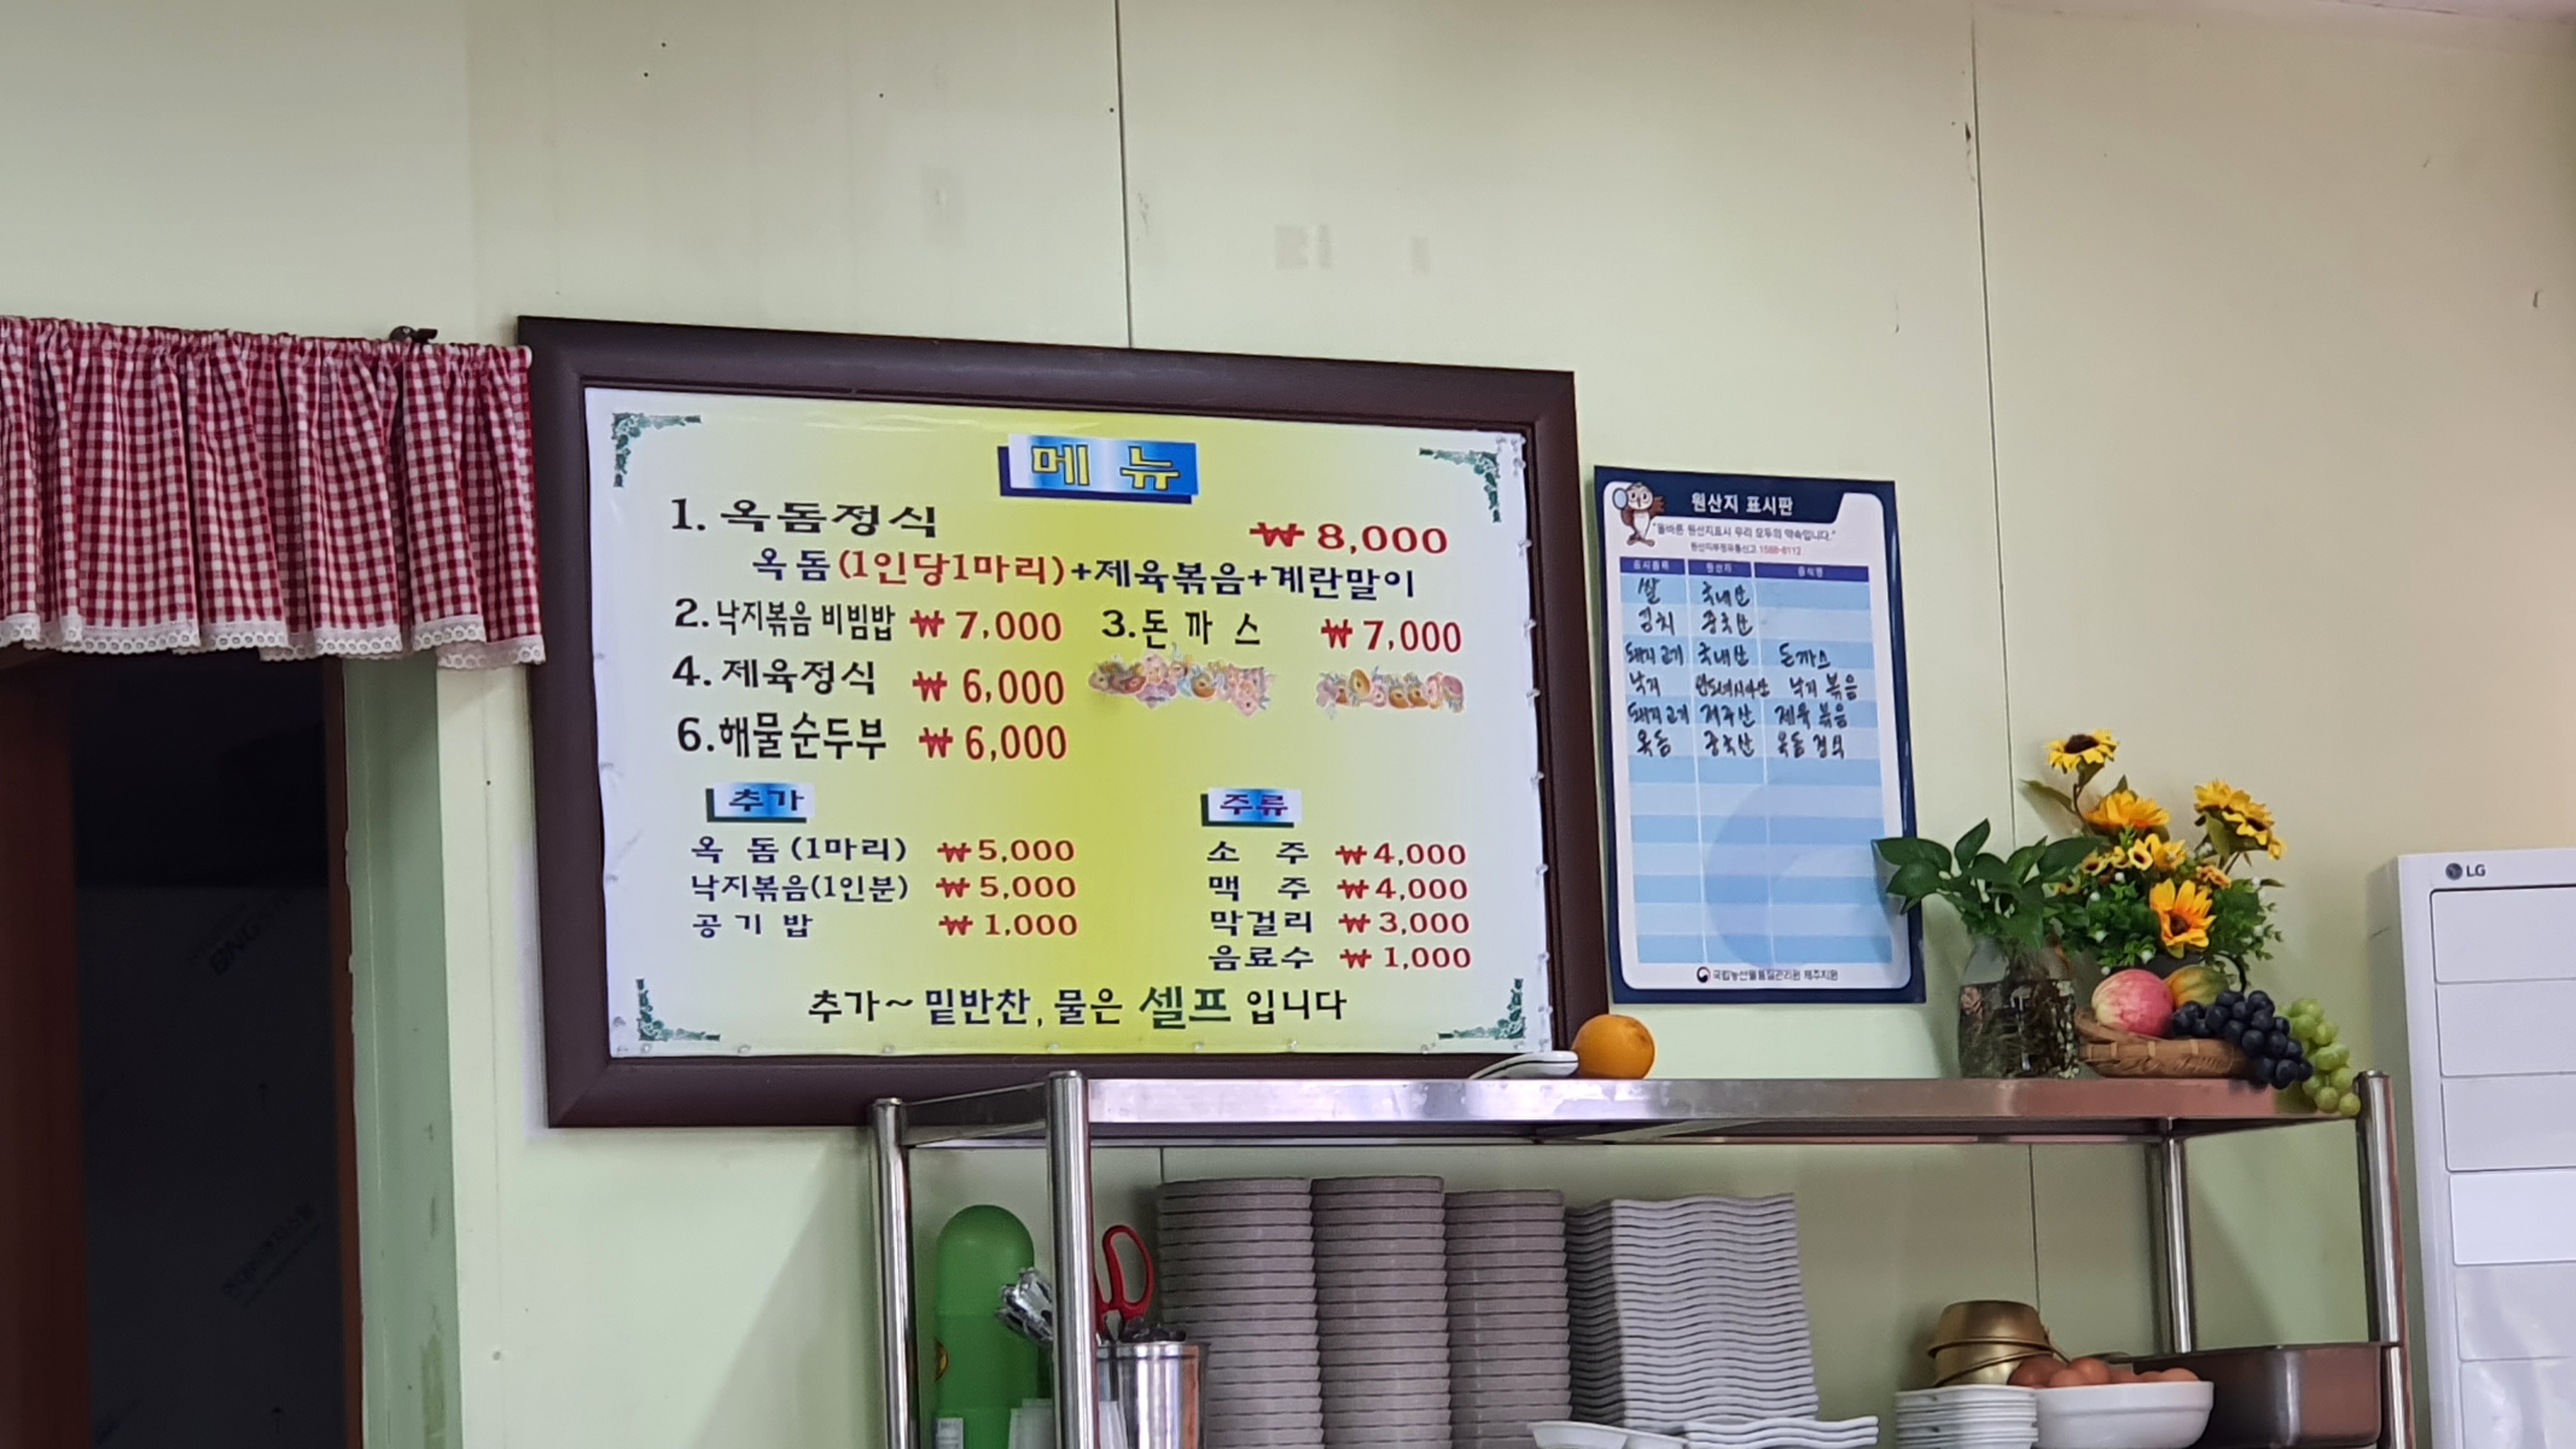 메 뉴
1. 옥돔정식 ₩ 8,000
옥돔(1인당1마리)+제육볶음+계란말이
2. 낙지볶음 비빔밥 ₩ 7,000 3. 돈 까 스 ₩ 7,000
4. 제육정식 ₩ 6,000
6. 해물순두부 ₩ 6,000
추가
옥 돔 (1마리) ₩ 5,000
낙지볶음(1인분) ₩ 5,000
공 기 밥 ₩ 1,000
주류
소 주 ₩ 4,000
맥 주 ₩ 4,000
막걸리 ₩ 3,000
음료수 ₩ 1,000
추가~ 밑반찬, 물은 셀프 입니다
원산지 표시판
"올바른 원산지표시 우리 모두의 약속입니다."
원산지부정유통신고 1588-8112
표시품목 원산지 음식명
쌀 국내산
김치 중국산
돼지고기 국내산 돈까스
낙지 인도네시아산 낙지볶음
돼지고기 제주산 제육볶음
옥돔 중국산 옥돔정식
국립농산물품질관리원 제주지원
LG